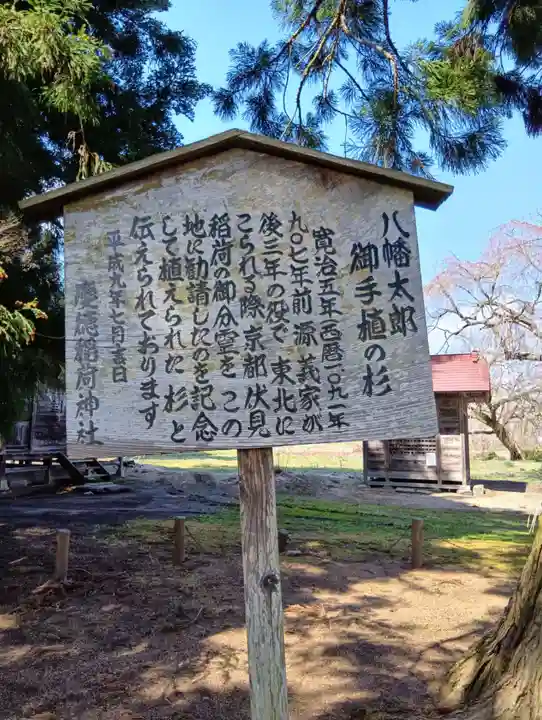 八幡太郎
御手植の杉
寛治五年西暦一〇九一年
九〇七年前源義家が
後三年の役で東北に
こられる際京都伏見
稲荷の御分霊をこの
地に勧請したのを記念
して植えられた杉と
伝えられております
平成九年七月吉日
慶徳稲荷神社